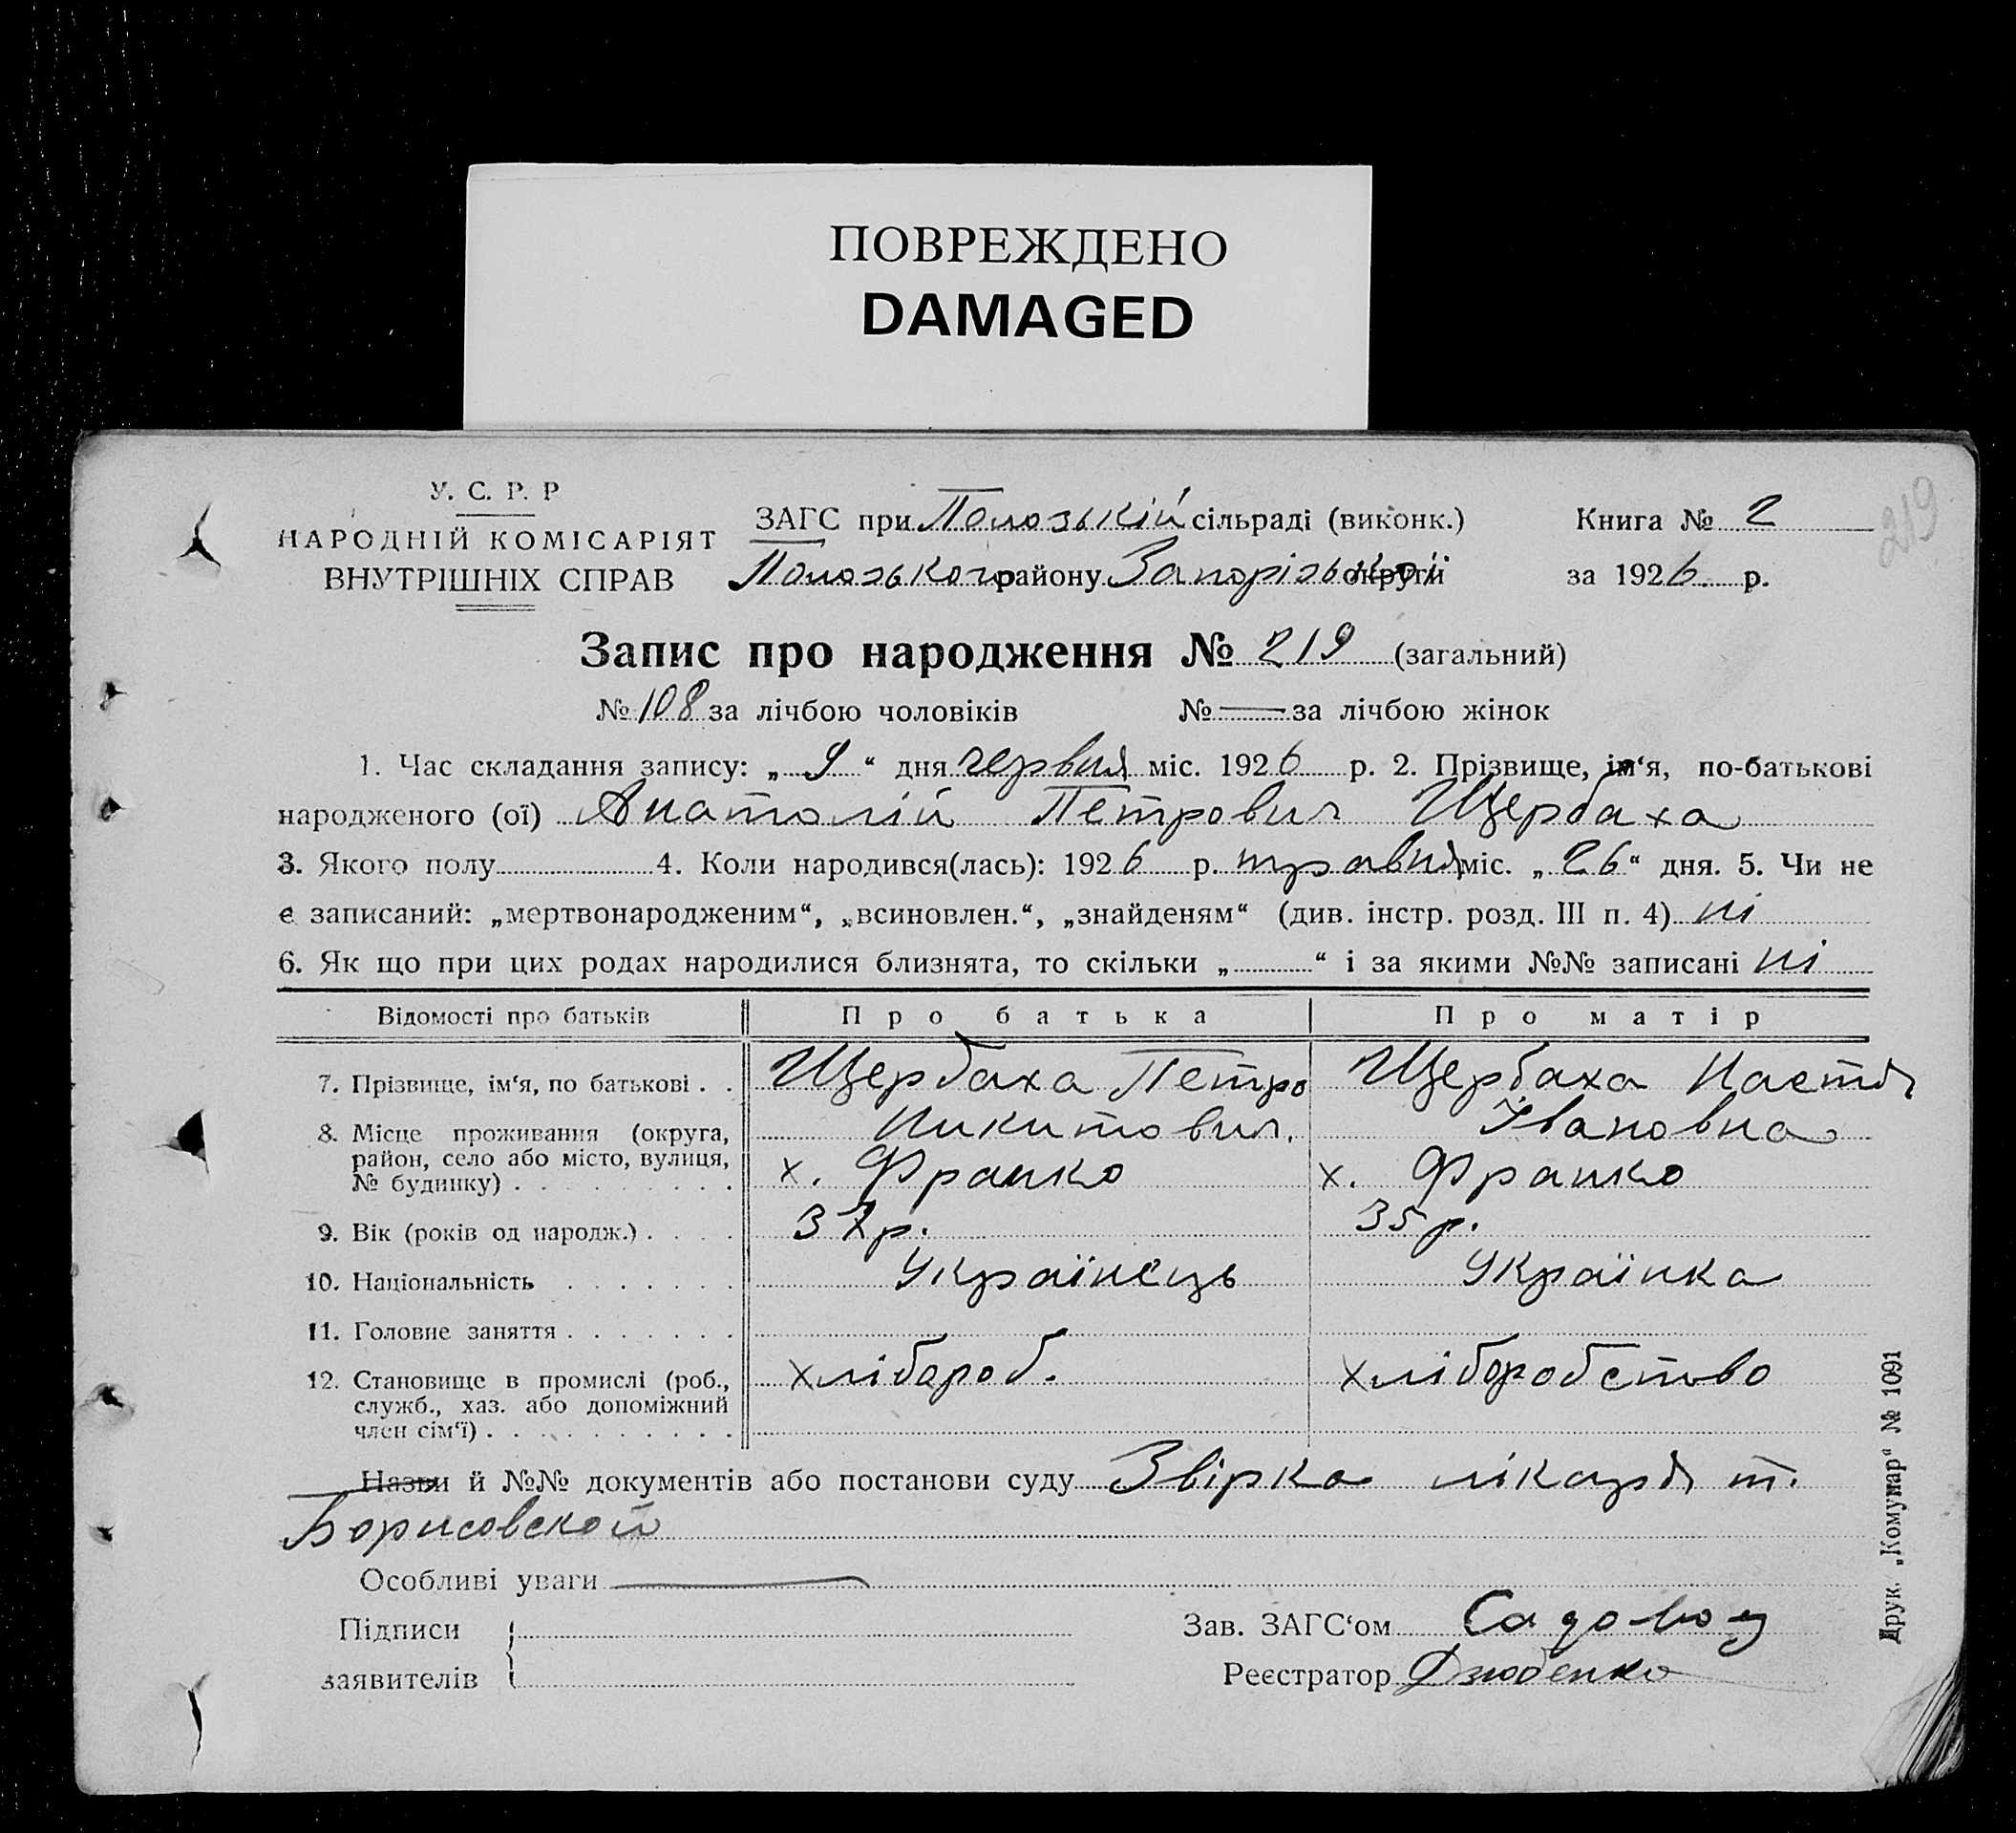 ПОВРЕЖДЕНО
DAMAGED
У. С. Р. Р
НАРОДНІЙ КОМІСАРІЯТ
ВНУТРІШНІХ СПРАВ
ЗАГС при Пологзькій сільраді (виконк.)
Пологзького району Запорізької округи
Книга № 2
за 1926 р.
219
Запис про народження № 219 (загальний)
№ 108 за лічбою чоловіків № — за лічбою жінок
1. Час складання запису: „ 9 “ дня червня міс. 1926 р. 2. Прізвище, ім‘я, по-батькові
народженого (ої) Анатолій Петрович Щербаха
3. Якого полу 4. Коли народився(лась): 1926 р. травня міс. „ 26 “ дня. 5. Чи не
є записаний: „мертвонародженим“, „всиновлен.“, „знайденям“ (див. інстр. розд. III п. 4) ні
6. Як що при цих родах народилися близнята, то скільки „ “ і за якими №№ записані ні
Відомості про батьків Про батька Про матір
7. Прізвище, ім‘я, по батькові . . Щербаха Петро Щербаха Настя
Никитович. Івановна
8. Місце проживання (округа,
район, село або місто, вулиця,
№ будинку) . . . . . . . . . х. Франко х. Франко
9. Вік (років од народж.) . . . . 37 р. 35 р.
10. Національність . . . . . . . Українець Українка
11. Головне заняття . . . . . . .
12. Становище в промислі (роб., хлібороб. хліборобство
служб., хаз. або допоміжний
член сім‘ї) . . . . . . . . . .
Назви й №№ документів або постанови суду Звірка лікаря т.
Борисовской
Особливі уваги —
Підписи
заявителів
Зав. ЗАГС‘ом
Реєстратор Дзюбенко
Друк. „Комунар“ № 1091